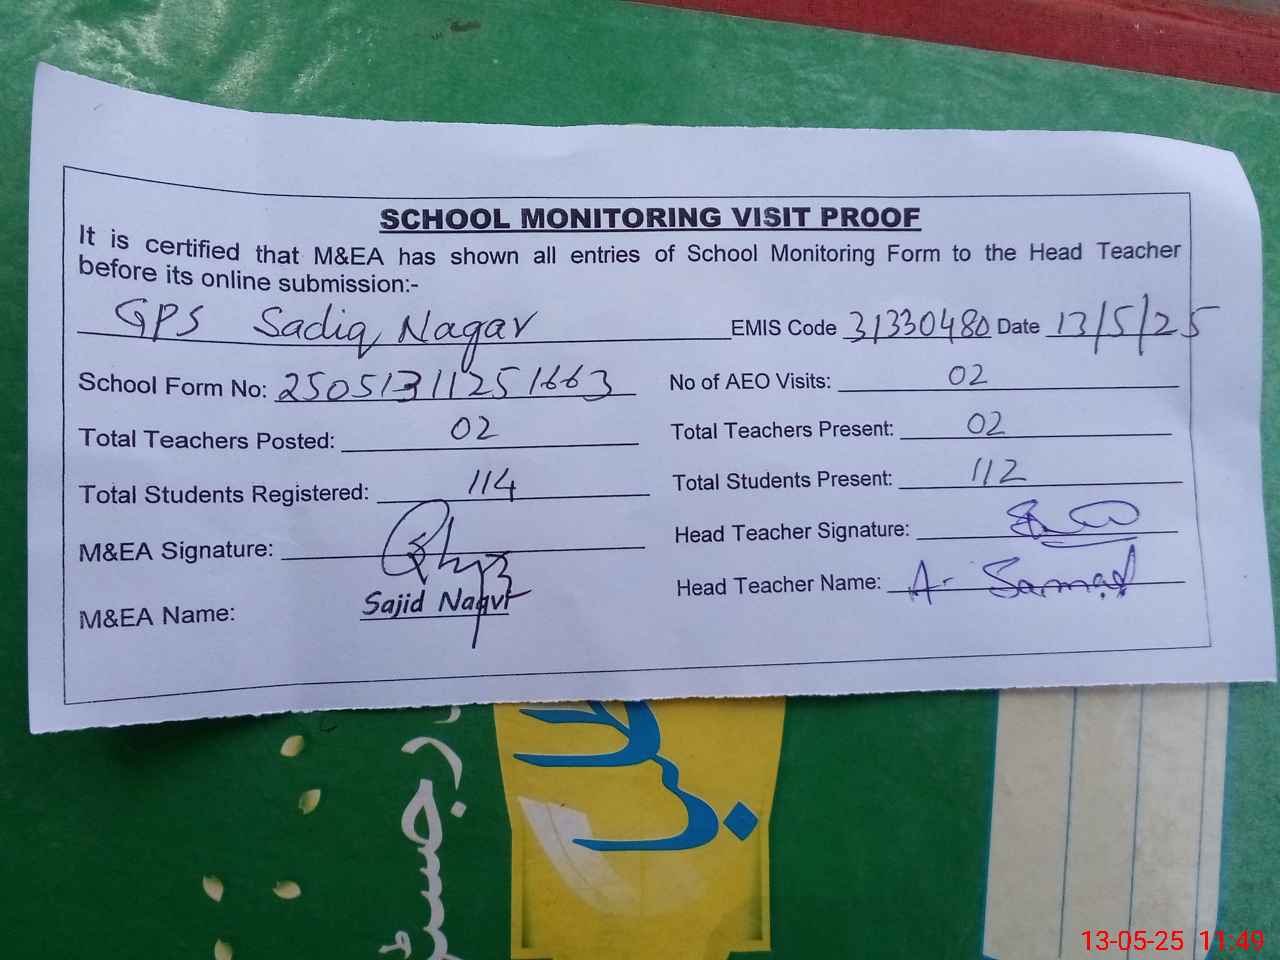 SCHOOL MONITORING VISIT PROOF
It is certified that M&EA has shown all entries of School Monitoring Form to the Head Teacher
before its online submission:-
GPS Sadiq Nagar EMIS Code 31330480 Date 13/5/25
School Form No: 250513111251663 No of AEO Visits: 02
Total Teachers Posted: 02 Total Teachers Present: 02
Total Students Registered: 114 Total Students Present: 112
M&EA Signature: Head Teacher Signature:
M&EA Name: Sajid Naqvi Head Teacher Name: A. Samad
13-05-25 11:49